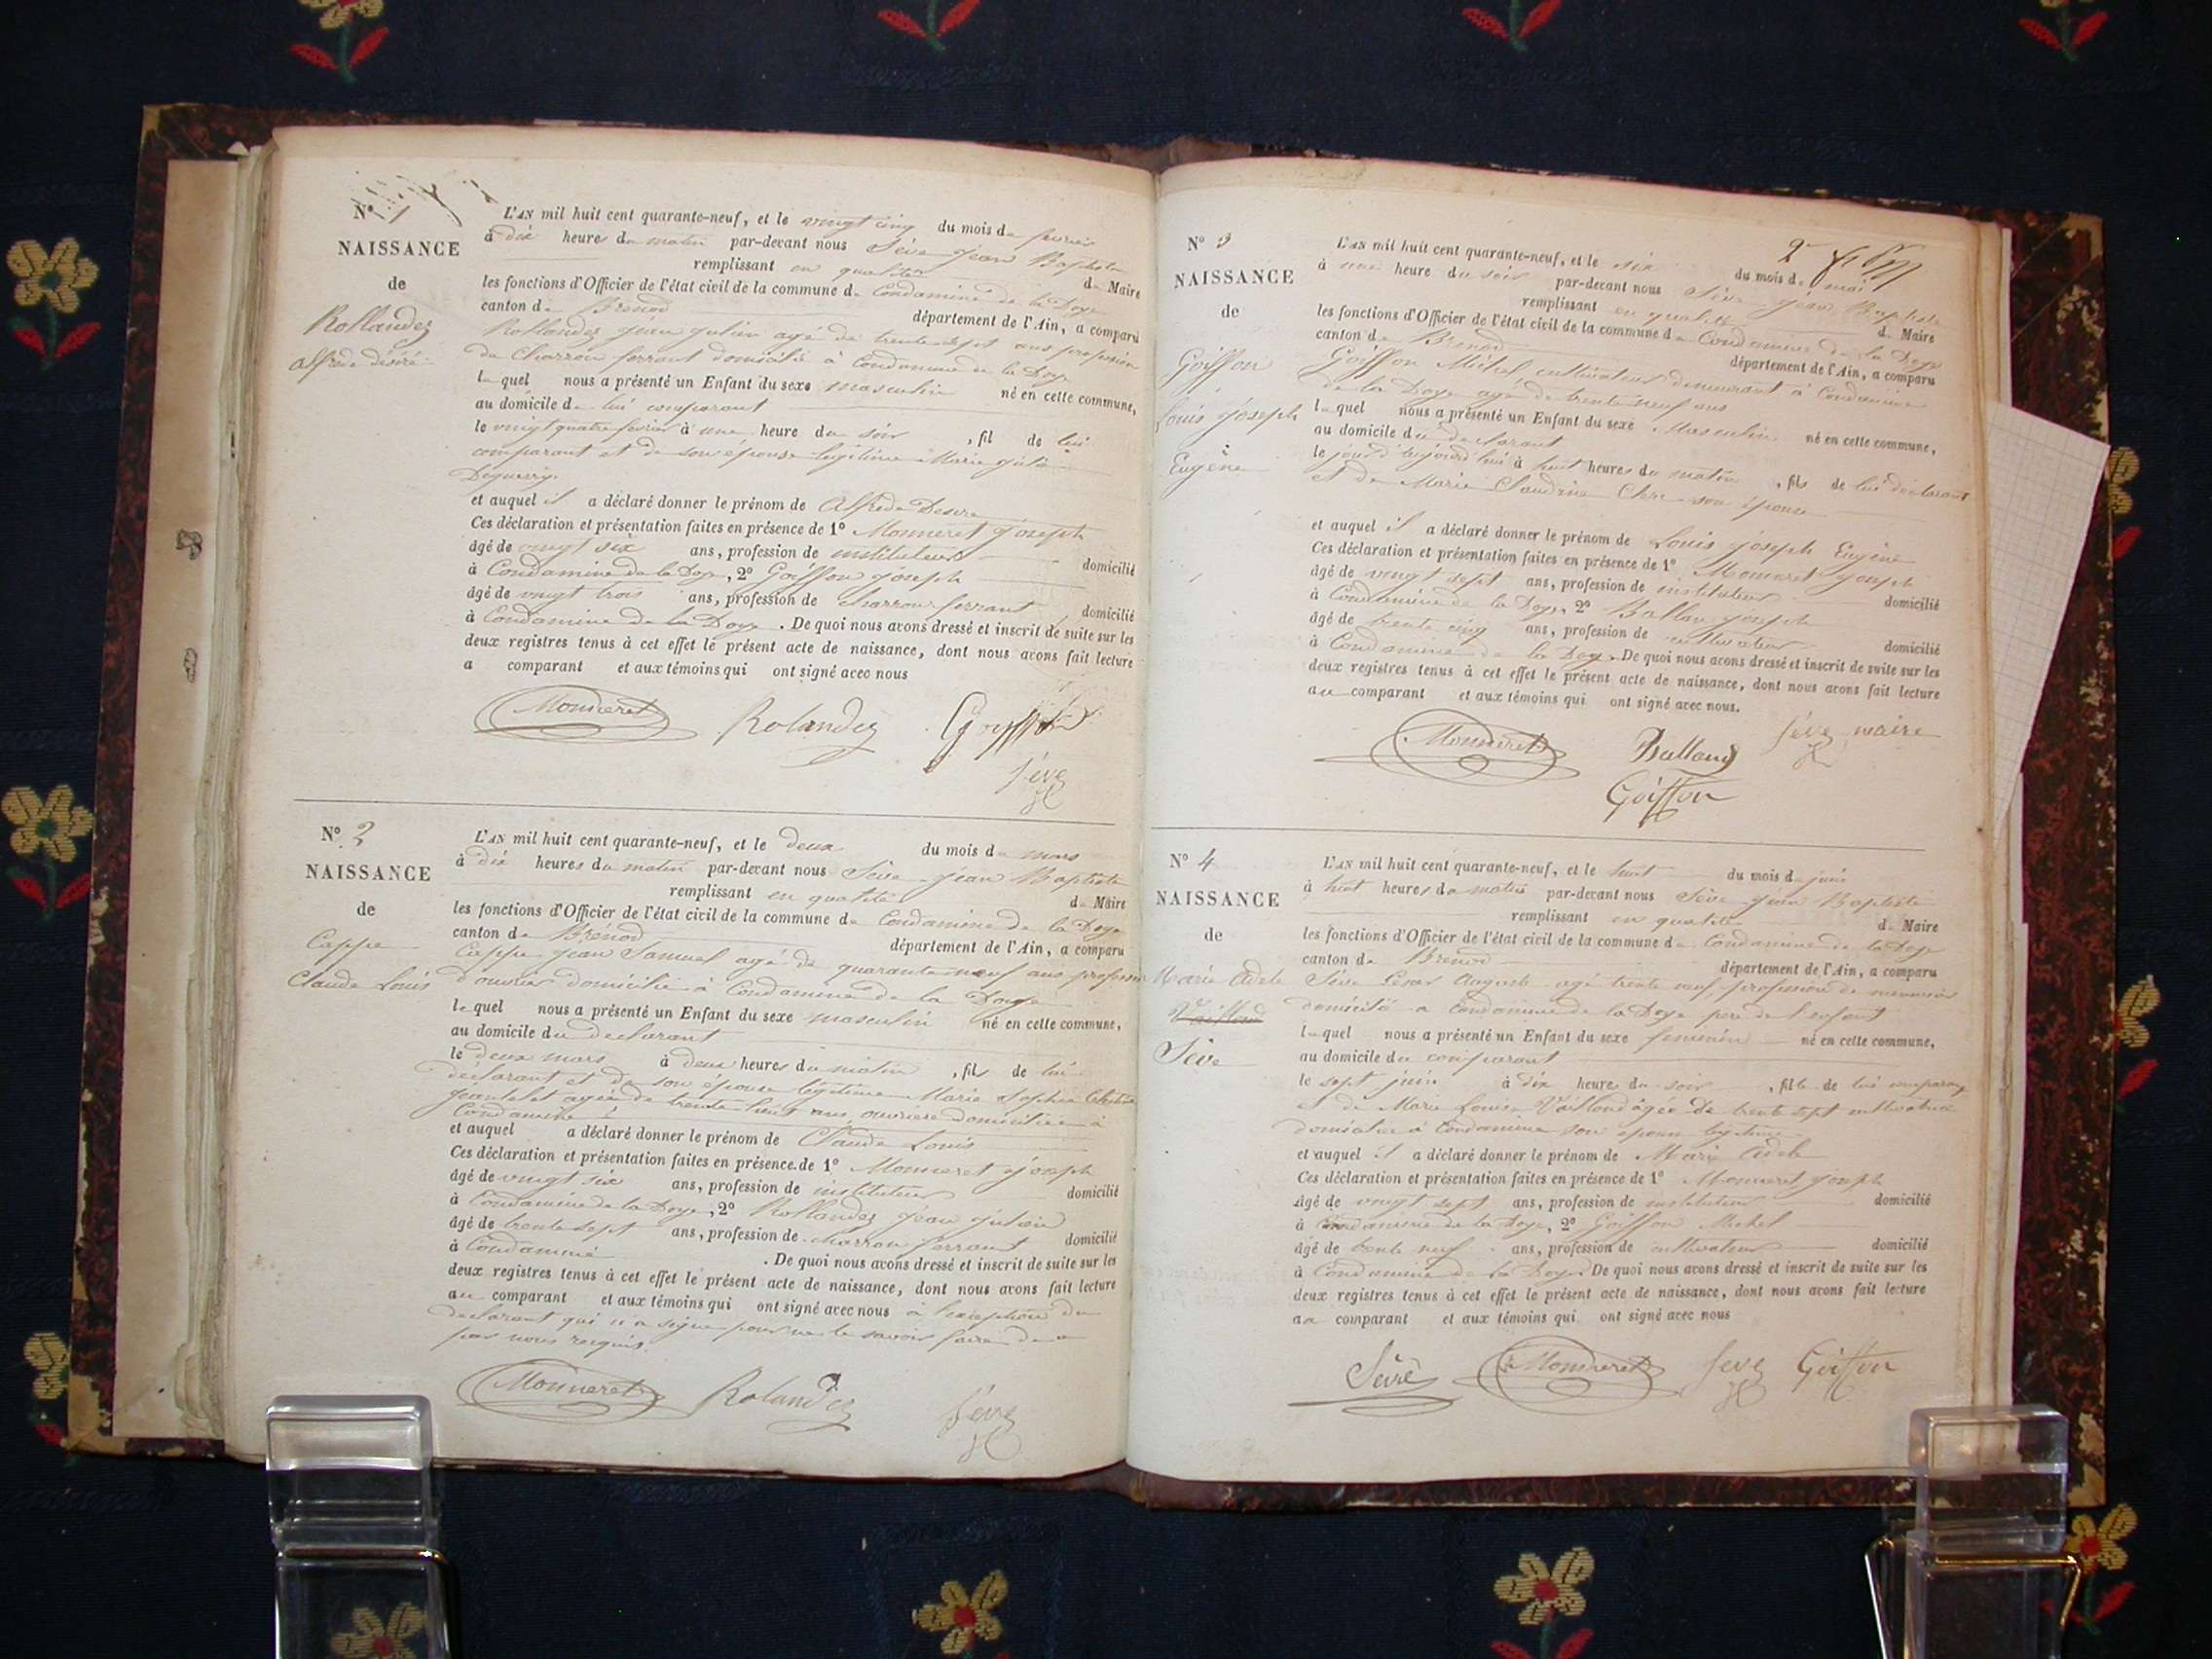 N° 1
NAISSANCE
de
Rollandez
Alfrede désiré
L'AN mil huit cent quarante-neuf, et le vingt cinq du mois de fevrier
à dix heures du matin par-devant nous Sève Jean Baptiste
remplissant en qualité de Maire
les fonctions d'Officier de l'état civil de la commune de Condamine de la Doye
canton de Brénod département de l'Ain, a comparu
Rollandez Jean Julien agé de trente sept ans profession
de Charron ferrant domicilié à Condamine de la Doye
lequel nous a présenté un Enfant du sexe masculin né en cette commune,
au domicile de lui comparant
le vingt quatre fevrier à une heure du soir, fil de lui
comparant et de son épouse légitime Marie Julie
et auquel il a déclaré donner le prénom de Alfrede Desire
Ces déclaration et présentation faites en présence de 1° Monneret Joseph
âgé de vingt six ans, profession de instituteur domicilié
à Condamine de la Doye, 2° Goiffon Joseph
âgé de vingt trois ans, profession de charron ferrant domicilié
à Condamine de la Doye. De quoi nous avons dressé et inscrit de suite sur les
deux registres tenus à cet effet le présent acte de naissance, dont nous avons fait lecture
a comparant et aux témoins qui ont signé avec nous
Monneret Rolandez Goiffon
Sève
N° 2
NAISSANCE
de
Cappe
Claude Louis
L'AN mil huit cent quarante-neuf, et le deux du mois de mars
à dix heures du matin par-devant nous Sève Jean Baptiste
remplissant en qualité de Maire
les fonctions d'Officier de l'état civil de la commune de Condamine de la Doye
canton de Brénod département de l'Ain, a comparu
Cappe Jean Samuel agé de quarante neuf ans profession
d'ouvrier domicilié à Condamine de la Doye
lequel nous a présenté un Enfant du sexe masculin né en cette commune,
au domicile du declarant
le deux mars à deux heures du matin, fils de lui
déclarant et de son épouse légitime Marie Sophie
agée de trente huit ans, ouvrière domiciliée à
Condamine
et auquel a déclaré donner le prénom de Claude Louis
Ces déclaration et présentation faites en présence de 1° Monneret Joseph
âgé de vingt six ans, profession de instituteur domicilié
à Condamine de la Doye, 2° Rollandez Jean Julien
âgé de trente sept ans, profession de charron ferrant domicilié
à Condamine. De quoi nous avons dressé et inscrit de suite sur les
deux registres tenus à cet effet le présent acte de naissance, dont nous avons fait lecture
au comparant et aux témoins qui ont signé avec nous à l'exception du
declarant qui n'a signé pour ne le savoir faire de ce
par nous requis
Monneret Rolandez Sève
N° 3
NAISSANCE
de
Goiffon
Louis Joseph
Eugène
L'AN mil huit cent quarante-neuf, et le six du mois de mai
à une heure du soir par-devant nous Sève Jean Baptiste
remplissant en qualité de Maire
les fonctions d'Officier de l'état civil de la commune de Condamine de la Doye
canton de Brénod département de l'Ain, a comparu
Goiffon Michel cultivateur demeurant à Condamine
de la Doye agé de trente neuf ans
lequel nous a présenté un Enfant du sexe Masculin né en cette commune,
au domicile du declarant
le jourd'hui à huit heures du matin, fils de lui declarant
et de Marie Claudine son épouse
et auquel il a déclaré donner le prénom de Louis Joseph Eugène
Ces déclaration et présentation faites en présence de 1° Monneret Joseph
âgé de vingt sept ans, profession de instituteur domicilié
à Condamine de la Doye, 2° Balland Joseph
âgé de trente cinq ans, profession de cultivateur domicilié
à Condamine de la Doye. De quoi nous avons dressé et inscrit de suite sur les
deux registres tenus à cet effet le présent acte de naissance, dont nous avons fait lecture
au comparant et aux témoins qui ont signé avec nous.
Monneret Balland Sève maire
Goiffon
N° 4
NAISSANCE
de
Marie Adele
Vailloud
Sève
L'AN mil huit cent quarante-neuf, et le huit du mois de juin
à huit heures du matin par-devant nous Sève Jean Baptiste
remplissant en qualité de Maire
les fonctions d'Officier de l'état civil de la commune de Condamine de la Doye
canton de Brénod département de l'Ain, a comparu
Sève César Auguste agé trente neuf profession de menuisier
domicilié a Condamine de la Doye pere de l'enfant
lequel nous a présenté un Enfant du sexe feminin né en cette commune,
au domicile du comparant
le sept juin à dix heures du soir, fille de lui comparant
et de Marie Louise Vailloud âgée de trente sept cultivatrice
domiciliée à Condamine son epouse légitime
et auquel il a déclaré donner le prénom de Marie Adele
Ces déclaration et présentation faites en présence de 1° Monneret Joseph
âgé de vingt sept ans, profession de instituteur domicilié
à Condamine de la Doye, 2° Goiffon Michel
âgé de trente neuf ans, profession de cultivateur domicilié
à Condamine de la Doye. De quoi nous avons dressé et inscrit de suite sur les
deux registres tenus à cet effet le présent acte de naissance, dont nous avons fait lecture
au comparant et aux témoins qui ont signé avec nous
Sève Monneret Sève Goiffon